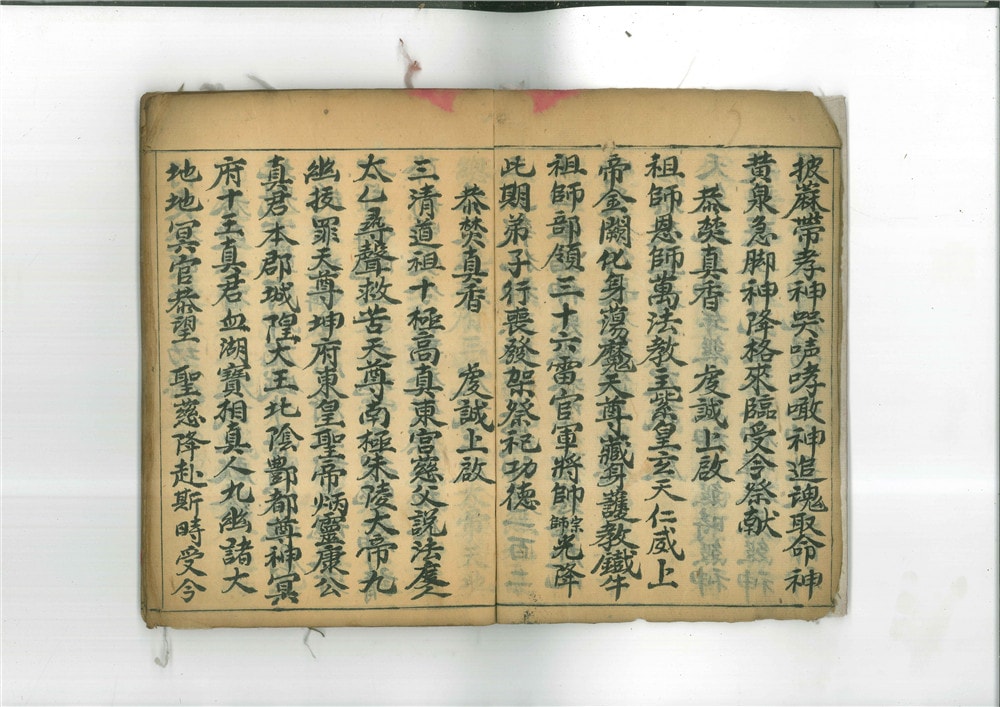 披蔴帶孝神哭声哮噉神追魂取命神
黄泉急脚神降格來臨受今祭献
恭焚真香　虔誠上啟
祖師恩師萬法教主紫皇玄天仁威上
帝金闕化身蕩魔天尊藏身護教鐵牛
祖師部領三十六雷官軍將師宗師光降
此期弟子行喪發架祭祀功德
恭焚真香　虔誠上啟
三清道祖十極高真東宮慈父説法度人
太乙尋聲救苦天尊南極朱陵大帝九
幽拔罪天尊坤府東皇聖帝炳靈康公
真君本郡城隍大王北隂酆都尊神冥
府十王真君血湖寶相真人九幽諸大
地地冥官恭望　聖慈降赴斯時受今